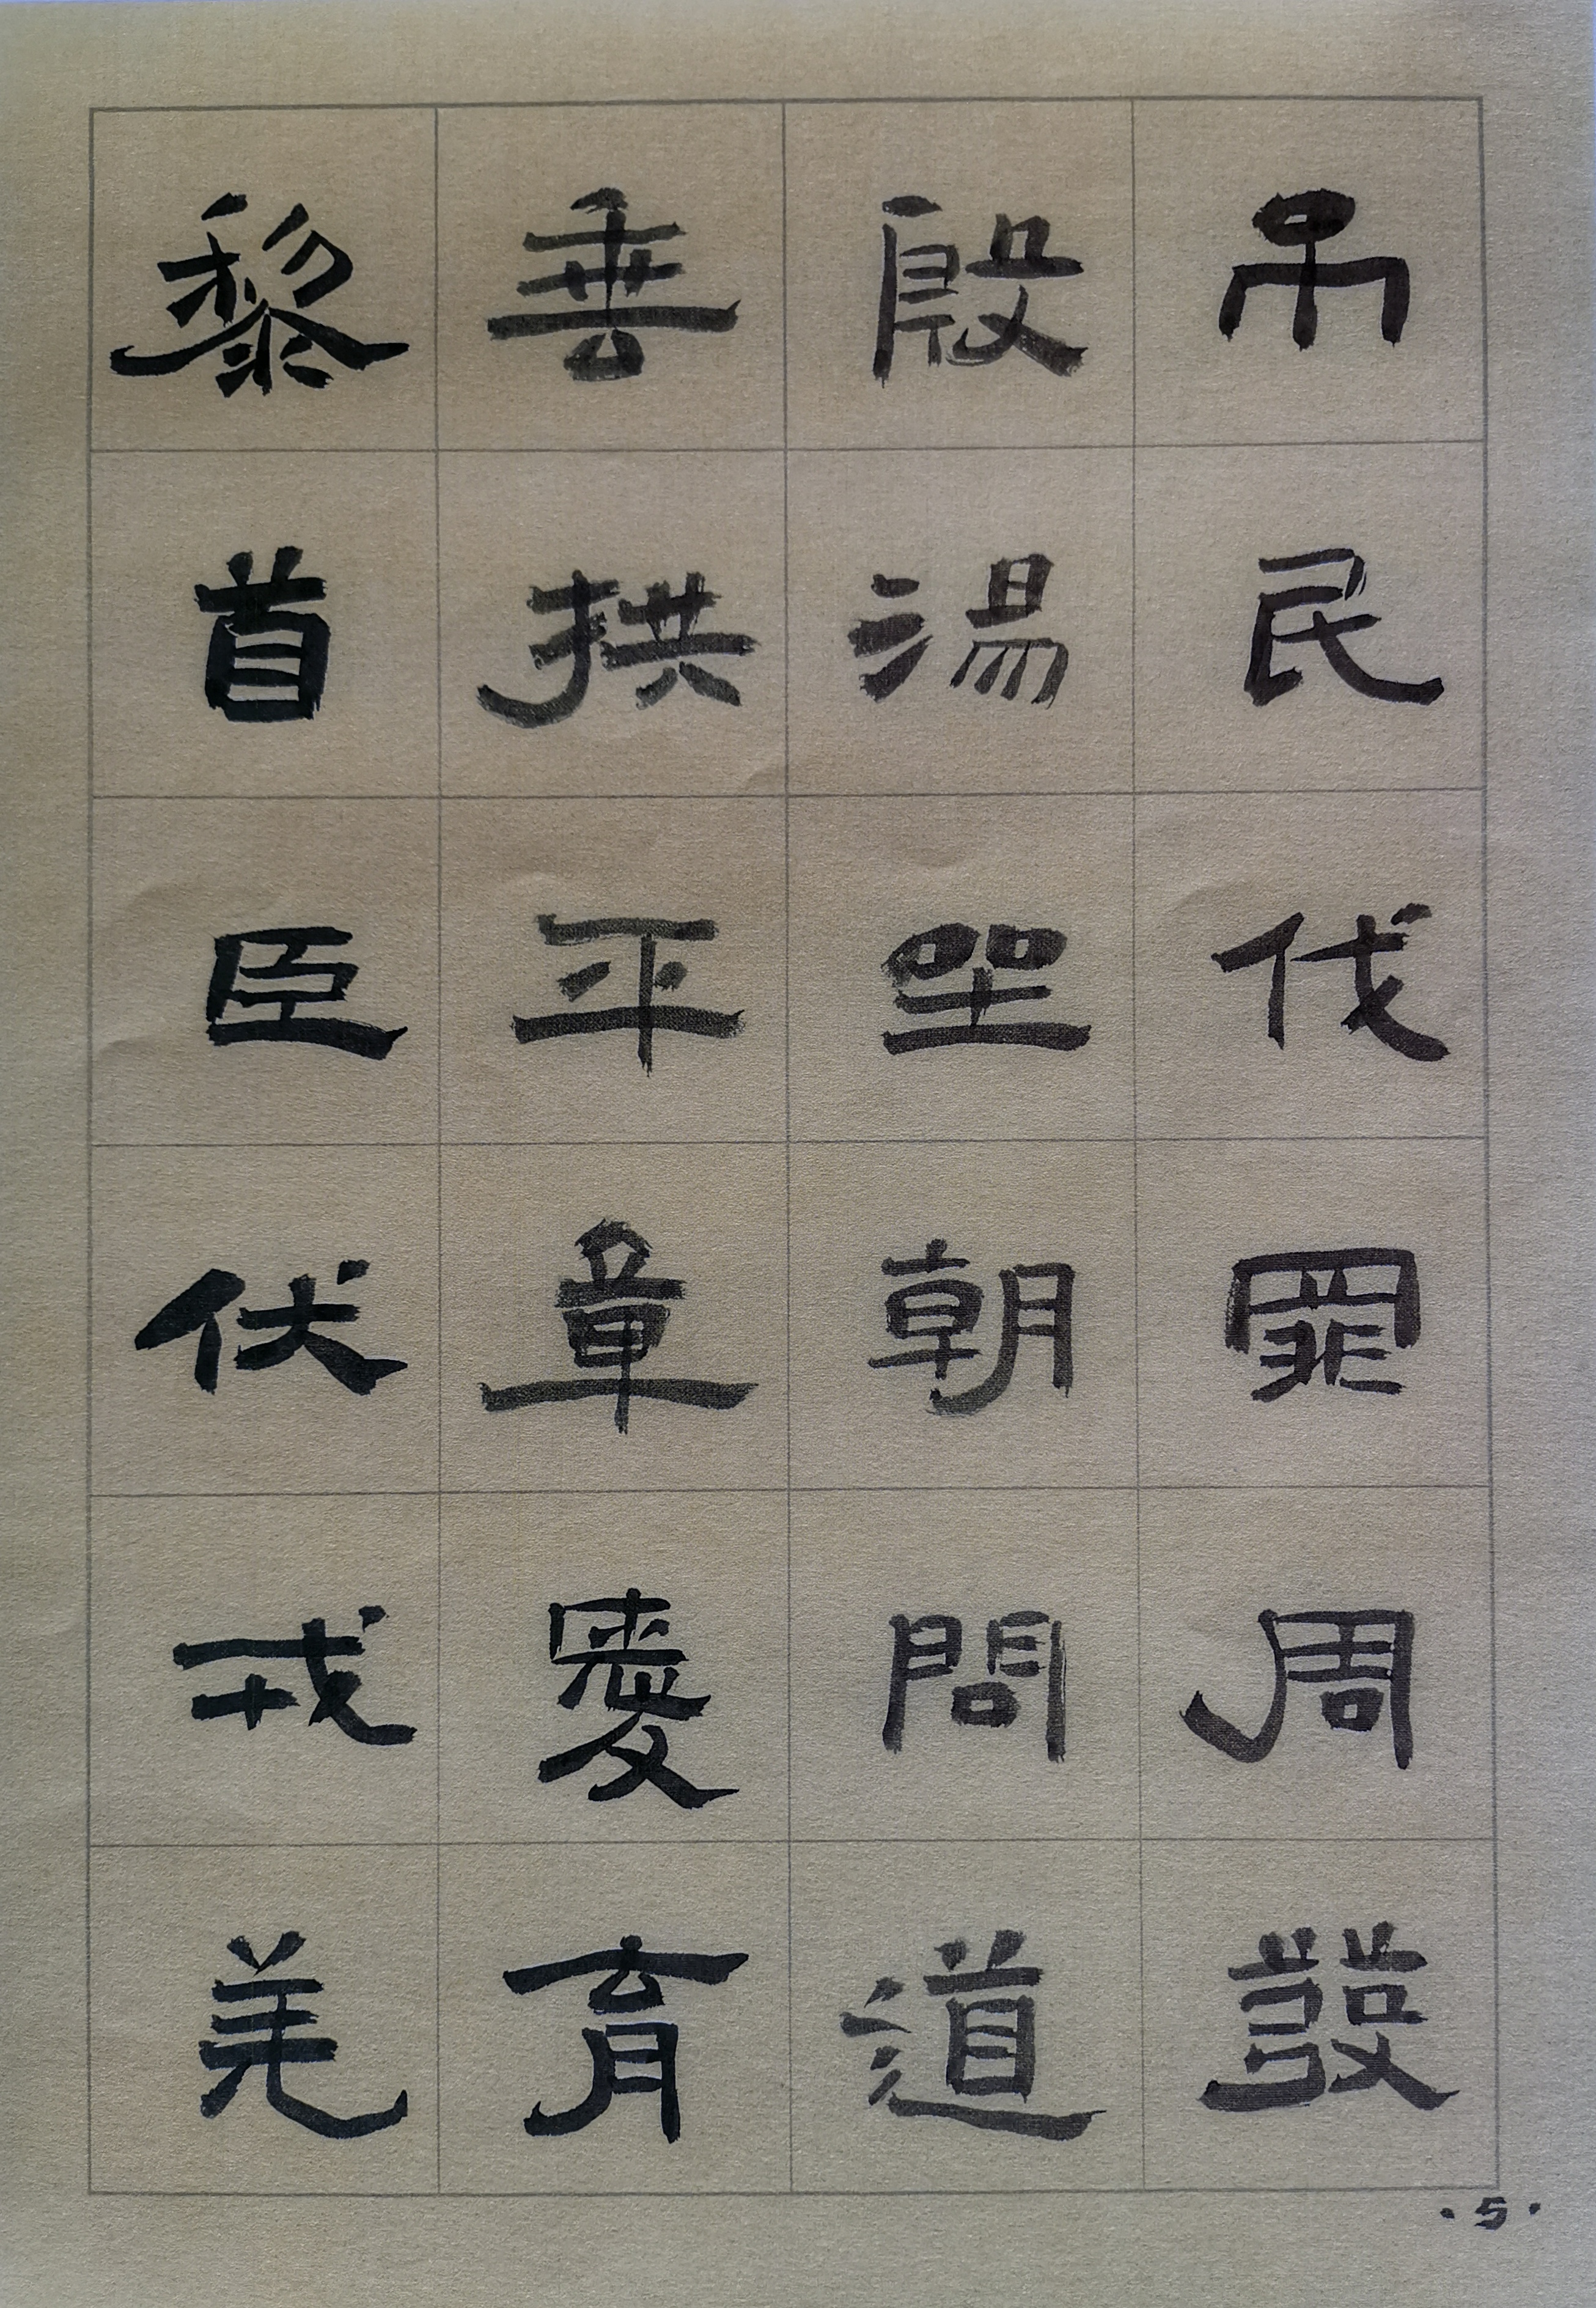 吊民伐罪周發
殷湯坐朝問道
垂拱平章愛育
黎首臣伏戎羌
·5·